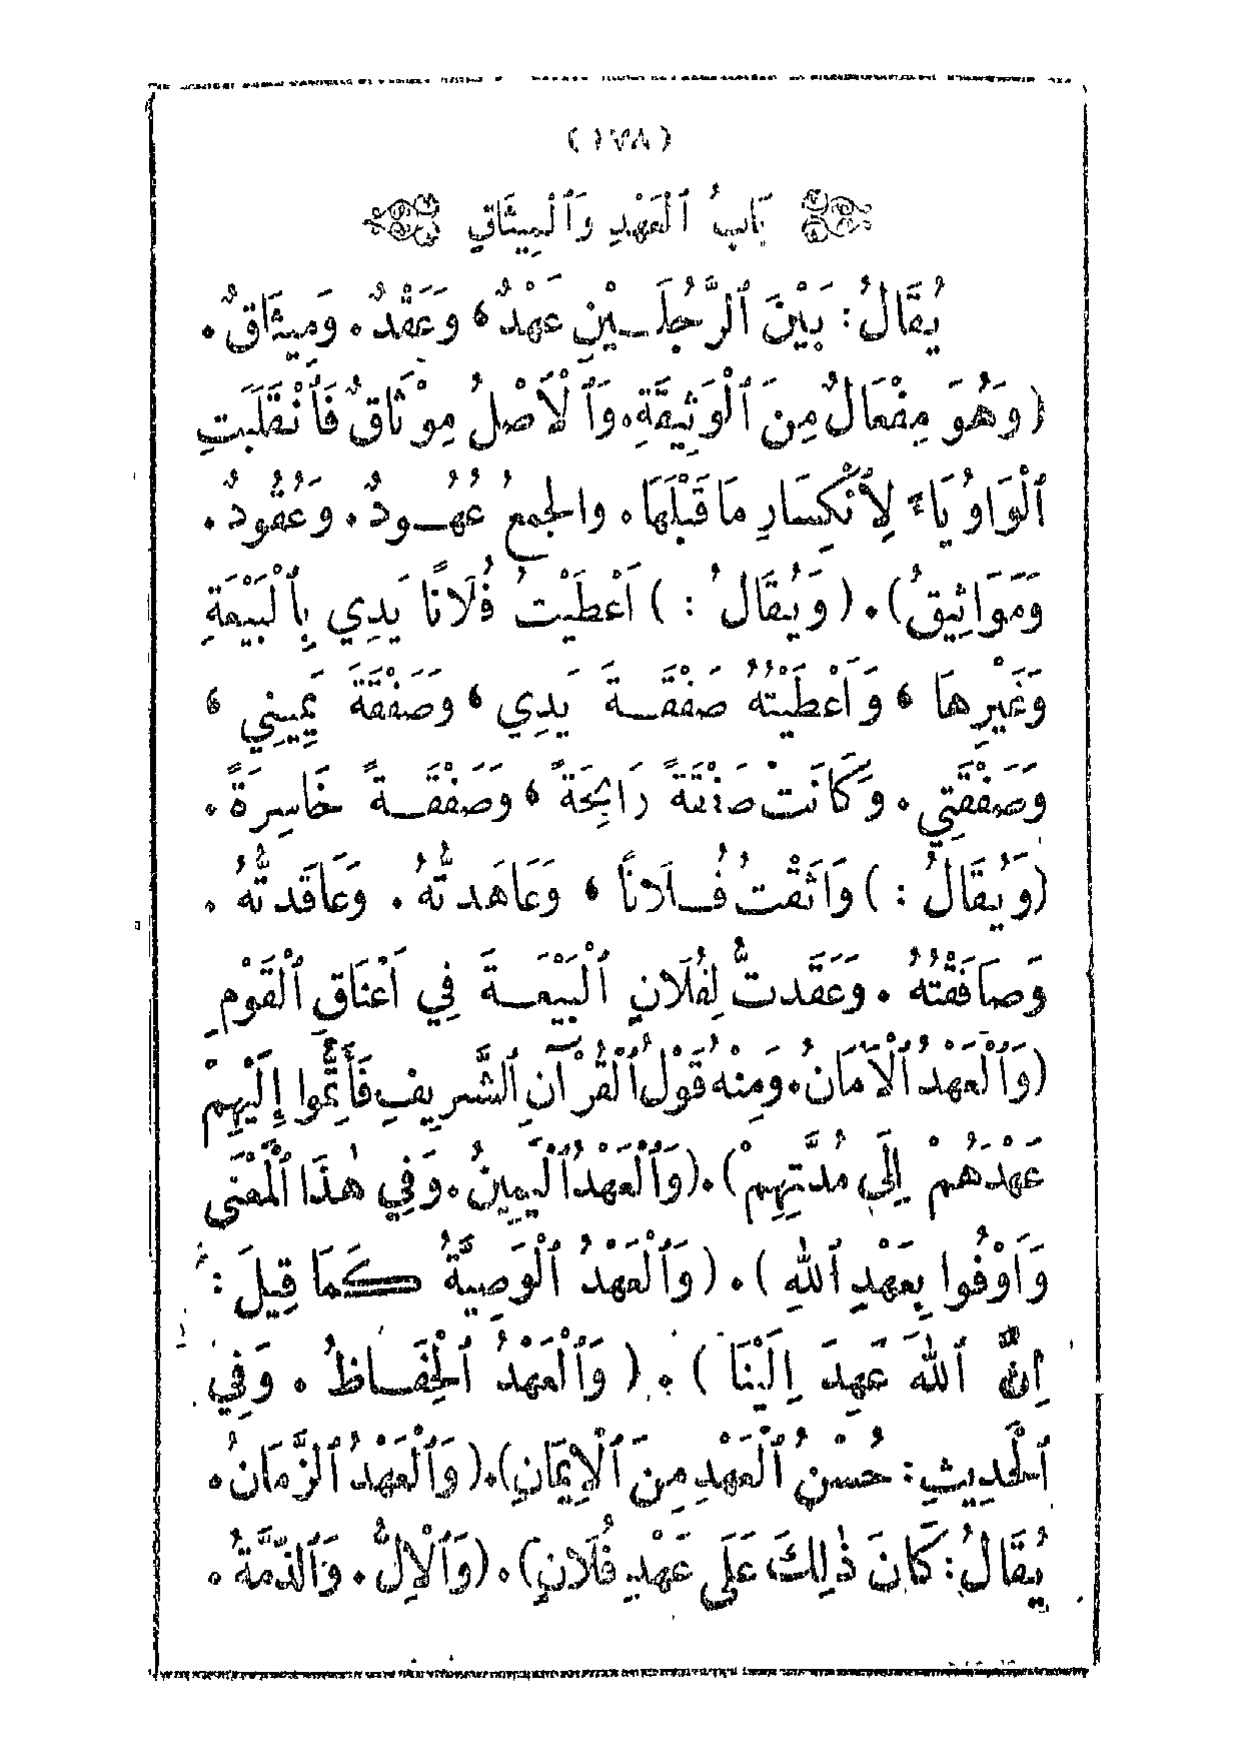 (١٧٨)
بَابُ ٱلْعَهْدِ وَٱلْمِيثَاقِ
يُقَالُ: بَيْنَ ٱلرَّجُلَـيْنِ عَهْدٌ، وَعَقْدٌ. وَمِيثَاقٌ.
(وَهُوَ مِفْعَالٌ مِنَ ٱلْوَثِيقَةِ. وَٱلْأَصْلُ مِوْثَاقٌ فَٱنْقَلَبَتِ
ٱلْوَاوُ يَاءً لِٱنْكِسَارِ مَا قَبْلَهَا. والجمعُ عُهُـودٌ. وَعُقُودٌ.
وَمَوَاثِيقُ). (وَيُقَالُ:) أَعْطَيْتُ فُلَانًا يَدِي بِٱلْبَيْعَةِ
وَغَيْرِهَا، وَأَعْطَيْتُهُ صَفْقَـةَ يَدِي، وَصَفْقَةَ يَمِينِي،
وَصَفْقَتِي. وَكَانَتْ صَفْقَةً رَابِحَةً، وَصَفْقَـةً خَاسِرَةً.
(وَيُقَالُ:) وَاثَقْتُ فُـلَانًا، وَعَاهَدتُّهُ. وَعَاقَدتُّهُ.
وَصَافَقْتُهُ. وَعَقَدتُّ لِفُلَانٍ ٱلْبَيْعَـةَ فِي أَعْنَاقِ ٱلْقَوْمِ
(وَٱلْعَهْدُ ٱلْأَمَانُ. وَمِنْهُ قَوْلُ ٱلْقُرْآنِ ٱلشَّرِيفِ فَأَتِمُّوا إِلَيْهِمْ
عَهْدَهُمْ إِلَى مُدَّتِهِمْ). (وَٱلْعَهْدُ ٱلْيَمِينُ. وَفِي هٰذَا ٱلْمَعْنَى
وَأَوْفُوا بِعَهْدِ ٱللهِ). (وَٱلْعَهْدُ ٱلْوَصِيَّةُ كَمَا قِيلَ:
إِنَّ ٱللهَ عَهِدَ إِلَيْنَا). (وَٱلْعَهْدُ ٱلْحِفَـاظُ. وَفِي
ٱلْحَدِيثِ: حُسْنُ ٱلْعَهْدِ مِنَ ٱلْإِيمَانِ). (وَٱلْعَهْدُ ٱلزَّمَانُ.
يُقَالُ: كَانَ ذٰلِكَ عَلَى عَهْدِ فُلَانٍ). (وَٱلْإِلُّ. وَٱلذِّمَّةُ.